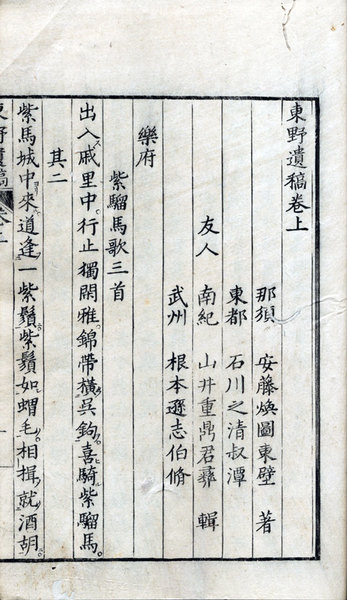 東野遺稿卷上
那須 安藤煥圖東壁 著
東都 石川之清叔潭
友人 南紀 山井重鼎君彝 輯
武州 根本遜志伯脩
樂府
紫騮馬歌三首
出入戚里中行止獨閑雅錦帶橫吳鉤喜騎紫騮馬
其二
紫馬城中來道逢一紫鬚紫鬚如蝟毛相揖就酒胡
東野遺稿 卷上